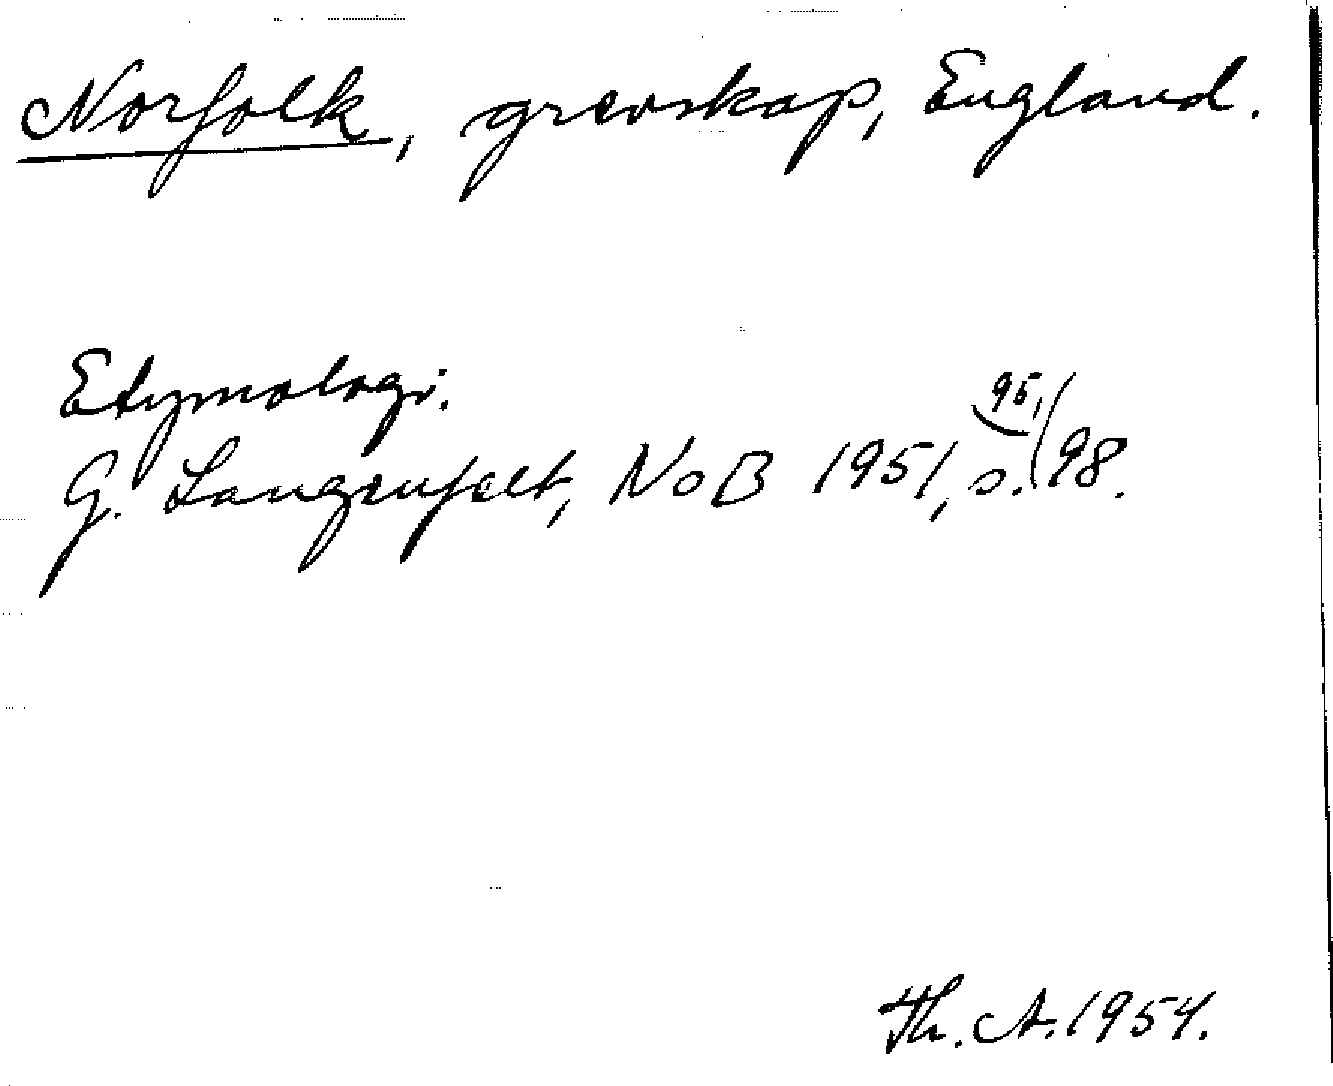 Norfolk, grevskap, England.
Etymologi.
G. Langenfelt, NoB 1951, s. 95, 98.
Th. A. 1954.